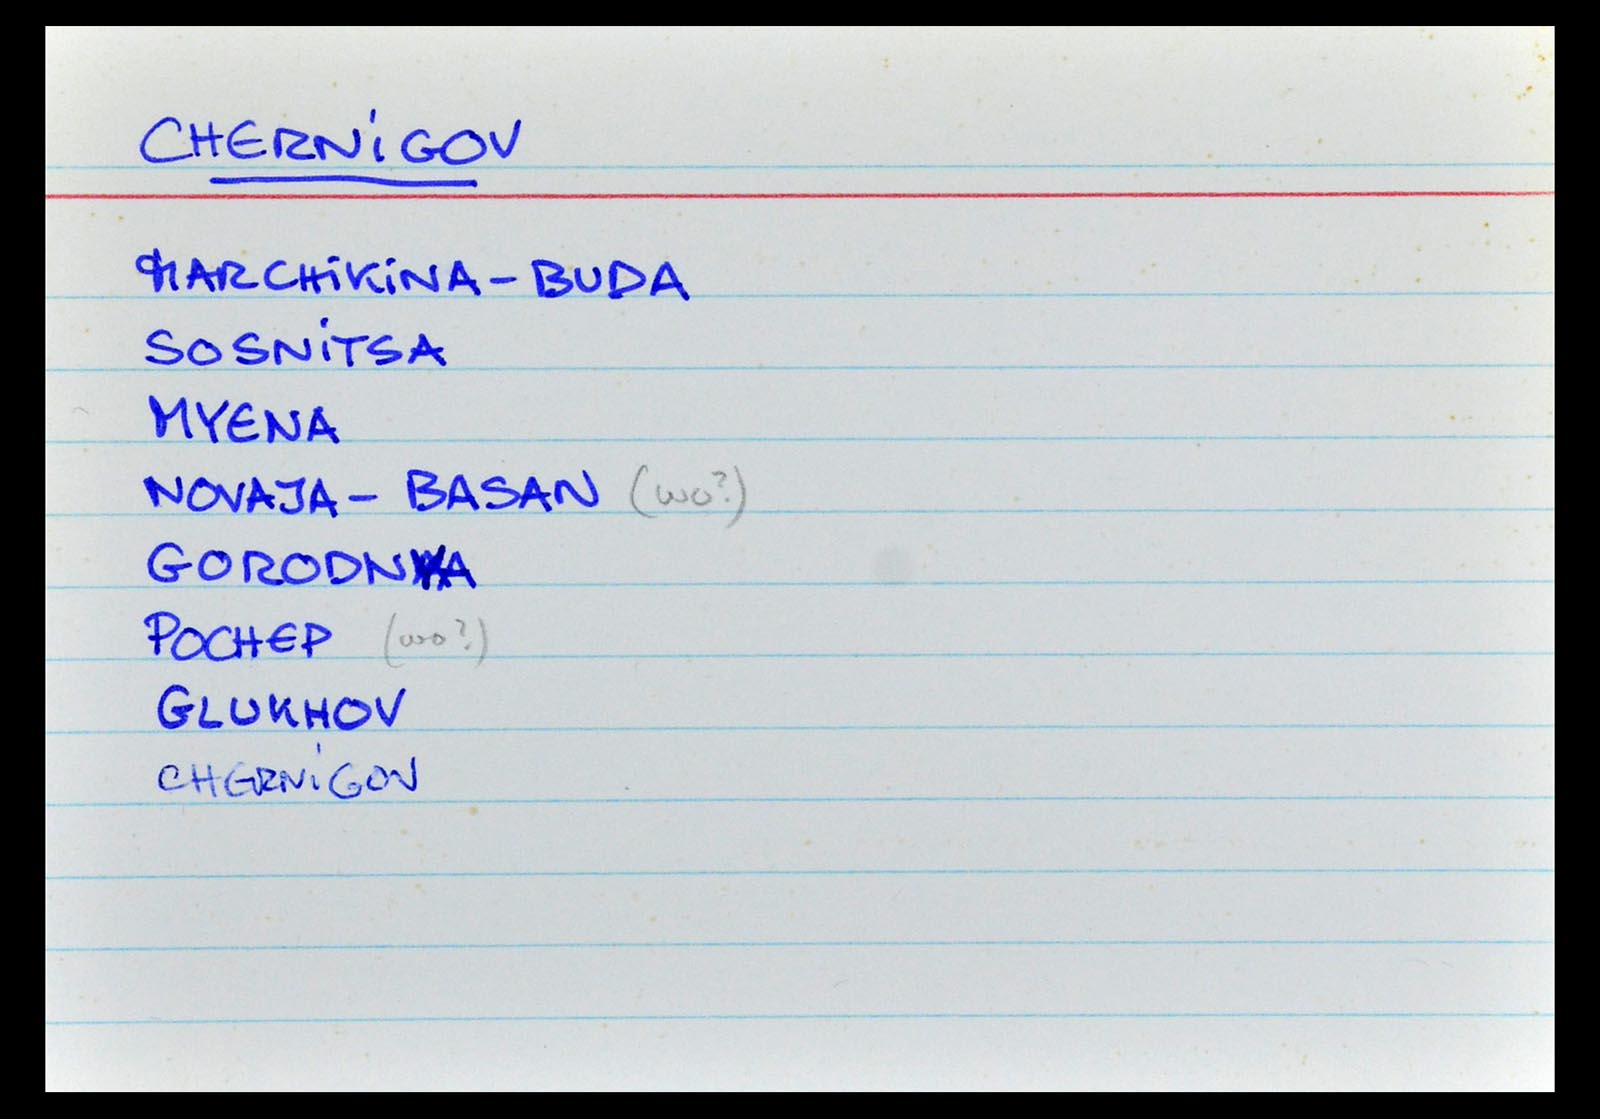 CHERNiGOV
MARCHiKiNA-BUDA
SOSNiTSA
MYENA
NOVAJA- BASAN (wo?)
POCHEP (wo?)
GLUKHOV
CHERNiGOV